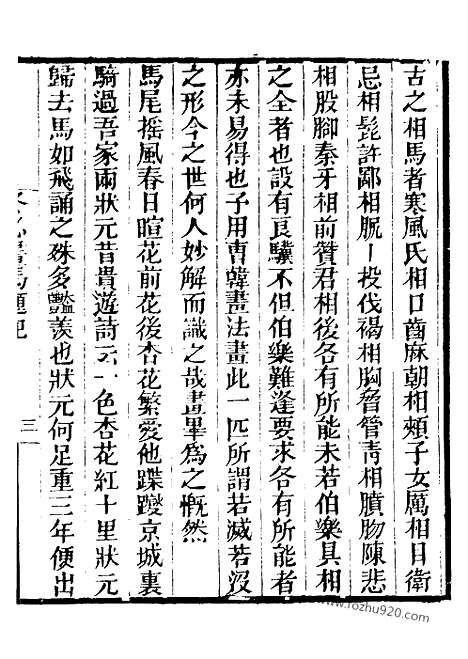 古之相馬者寒風氏相口齒麻朝相頰子女厲相目衛
忌相髭許鄙相脫丨投伐褐相胸脅管青相膹肳陳悲
相股腳秦牙相前贊君相後各有所能未若伯樂具相
之全者也設有良驥不但伯樂難逢要求各有所能者
亦未易得也子用曹韓畫法畫此一匹所謂若滅若沒
之形今之世何人妙解而識之哉畫畢為之慨然
馬尾搖風春日暄花前花後杏花繁愛他蹀躞京城裏
騎過吾家兩狀元昔貴遊詩云一色杏花紅十里狀元
歸去馬如飛誦之殊多豔羨也狀元何足重三年便出
畫馬題記
三
www.fozhu920.com